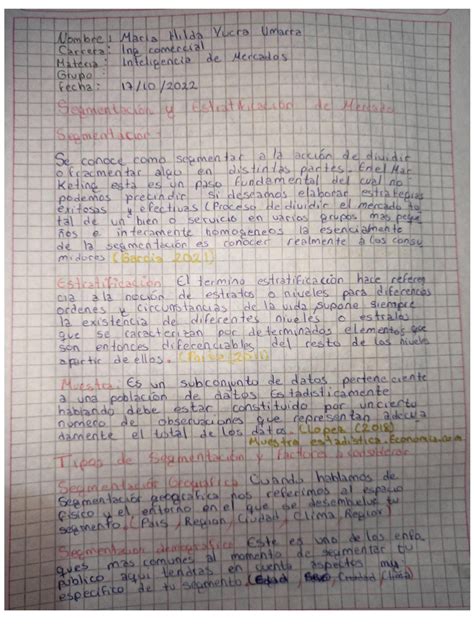 Nombre: Maria Hilda Yucra Umarra
Carrera: Ing comercial
Materia: Inteligencia de Mercados
Grupo:
Fecha: 17/10/2022
Segmentación y Estratificación de Mercado
Segmentación:
Se conoce como segmentar a la acción de dividir
o fracmentar algo en distintas partes. En el Mar
Keting esta es un paso fundamental del cual no
podemos precundir si deseamos elaborar estrategias
exitosas y efectivas (Proceso de dividir el mercado to
tal de un bien o servicio en varios grupos mas peque
ños e interamente homogeneos la esencialmente
de la segmentación es conocer realmente a los consu
midores (2021)
Estratificación El termino estratificación hace referen
cia a la noción de estratos o niveles para diferencias
ordenes y circunstancias de la vida, supone siempre
la existencia de diferentes niveles o estratos
que se caracterizan por determinados elementos que
son entonces diferenciables del resto de los niveles
apartir de ellos.
Muestra: Es un subconjunto de datos perteneciente
a una población de datos Estadisticamente
hablando debe estar constituido por un cierto
numero de observaciones que representan adecua
damente el total de los datos. (Lopez (2018)
Muestra estadistica. Economia.com
Tipos de Segmentación y Factores a considerar
Segmentación Geografica Cuando hablamos de
segmentación geografica nos referimos al espacio
fisico y el entorno en el que se desembuelve tu
segmento, (Pais, Region, Ciudad, Clima, Region)
Segmentación demografica Este es uno de los enfo
ques mas comunes al momento de segmentar tu
publico aqui tendras en cuenta aspectos muy
especifico de tu segmento (Edad, Ciudad, Clima)